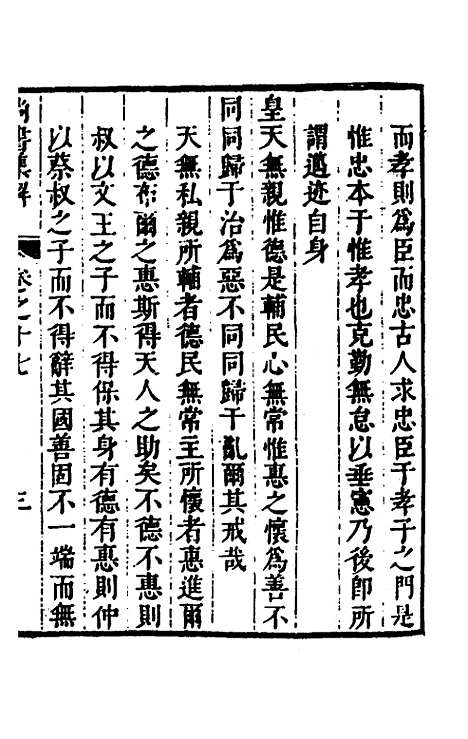 而孝則爲臣而忠古人求忠臣于孝子之門是
惟忠本于惟孝也克勤無怠以垂憲乃後卽所
謂邁迹自身
皇天無親惟德是輔民心無常惟惠之懷爲善不
同同歸于治爲惡不同同歸于亂爾其戒哉
天無私親所輔者德民無常主所懷者惠進爾
之德布爾之惠斯得天人之助矣不德不惠則
叔以文王之子而不得保其身有德有惠則仲
以蔡叔之子而不得辭其國善固不一端而無
尚書集解 卷之十七 三